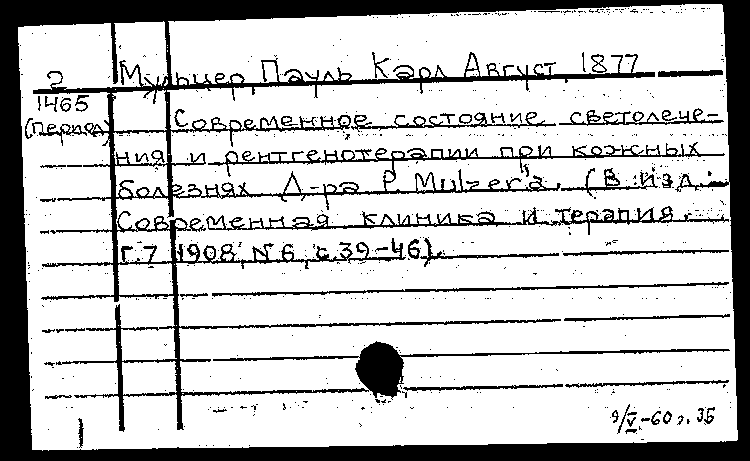 2 Мульцер, Пауль Карл Август, 1877
1465
(период)
Современное состояние светолече-
ния и рентгенотерапии при кожных
болезнях Д-ра P. Mulzer'а. (В изд.:
Современная клиника и терапия.
г. 7, 1908, № 6, с. 39-46).
9/V-60 г. 35